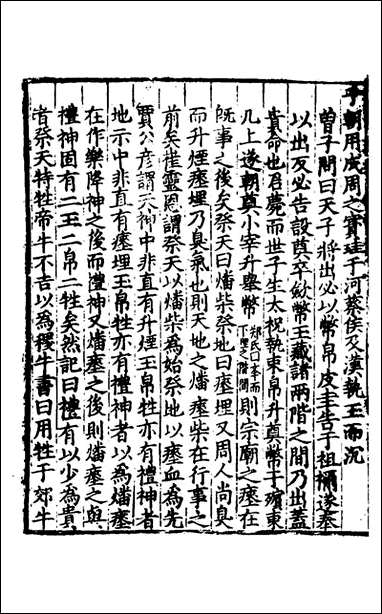 子朝用成周之寶珪于河蔡侯及漢執玉而沉
曾子問曰天子將出必以幣帛皮圭告于祖禰遂奉
以出反必告設奠卒斂幣玉藏諸兩階之間乃出蓋
貴命也君薨而世子生太祝執束帛升奠幣于殯東
几上遂朝奠小宰升舉幣鄭氏曰舉而下埋之階間則宗廟之瘞在
旣事之後矣祭天曰燔柴祭地曰瘞埋又周人尚臭
而升煙瘞埋乃臭氣也則天地之燔瘞柴在行事之
前矣崔靈恩謂祭天以燔柴為始祭地以瘞血為先
賈公彥謂天神中非直有升煙玉帛牲亦有禮神者
地示中非直有瘞埋玉帛牲亦有禮神者以為燔瘞
在作樂降神之後而禮神又燔瘞之後則燔瘞之與
禮神固有二玉二帛二牲矣然記曰禮有以少為貴
者祭天特牲帝牛不吉以為稷牛書曰用牲于郊牛